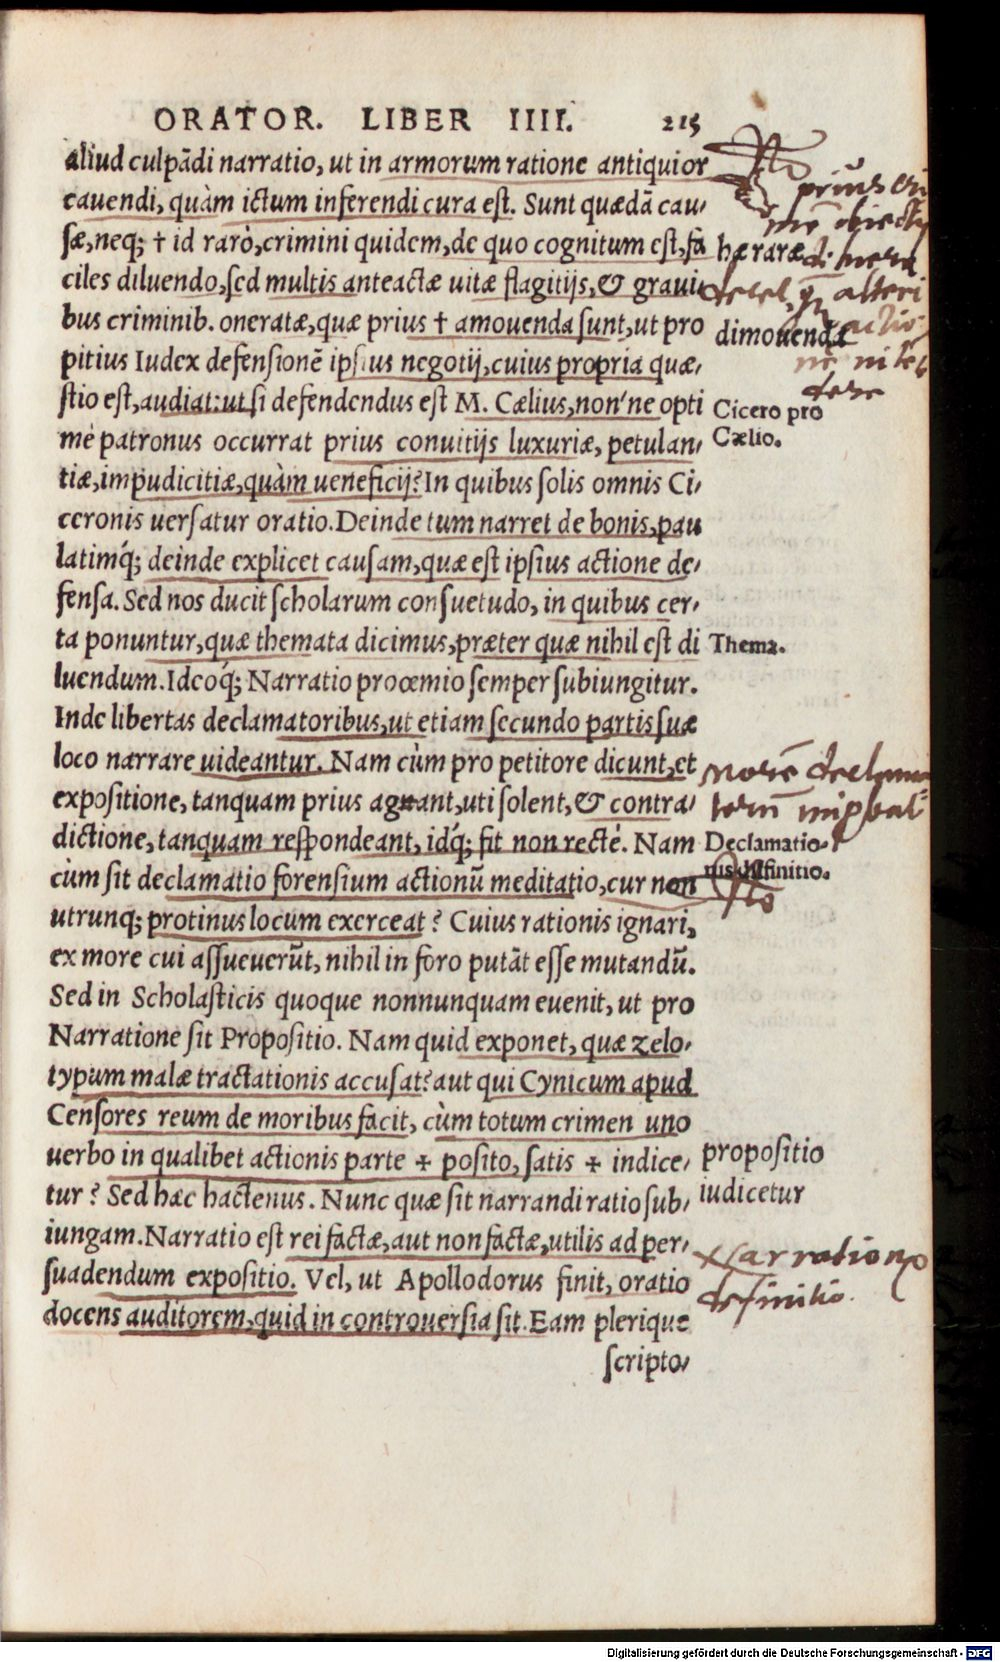 ORATOR. LIBER IIII. 215
aliud culpãdi narratio, ut in armorum ratione antiquior
cauendi, quàm ictum inferendi cura est. Sunt quædã cau-
sæ, neq; † id rarò, crimini quidem, de quo cognitum est, fa
hæ raræ
ciles diluendo, sed multis anteactæ uitæ flagitijs, & graui
bus criminib. oneratæ, quæ prius † amouenda sunt, ut pro
dimouenda
pitius Iudex defensionē ipsius negotij, cuius propria quæ-
stio est, audiat: ut si defendendus est M. Cælius, non'ne opti
Cicero pro
Cælio.
mè patronus occurrat prius conuitijs luxuriæ, petulan-
tiæ, impudicitiæ, quàm ueneficij? In quibus solis omnis Ci-
ceronis uersatur oratio. Deinde tum narret de bonis, pau
latimq́; deinde explicet causam, quæ est ipsius actione de-
fensa. Sed nos ducit scholarum consuetudo, in quibus cer-
ta ponuntur, quæ themata dicimus, præter quæ nihil est di
Thema.
luendum. Ideoq́; Narratio proœmio semper subiungitur.
Inde libertas declamatoribus, ut etiam secundo partis suæ
loco narrare uideantur. Nam cùm pro petitore dicunt, et
expositione, tanquam prius agant, uti solent, & contra-
dictione, tanquam respondeant, idq́; fit non rectè. Nam
Declamatio-
nis diffinitio.
cùm sit declamatio forensium actionū meditatio, cur non
utrunq; protinus locum exerceat? Cuius rationis ignari,
ex more cui assueuerūt, nihil in foro putãt esse mutandū.
Sed in Scholasticis quoque nonnunquam euenit, ut pro
Narratione sit Propositio. Nam quid exponet, quæ zelo-
typum malæ tractationis accusat? aut qui Cynicum apud
Censores reum de moribus facit, cùm totum crimen uno
uerbo in qualibet actionis parte ✢ posito, satis ✢ indice-
propositio
iudicetur
tur? Sed hæc hactenus. Nunc quæ sit narrandi ratio sub-
iungam. Narratio est rei factæ, aut non factæ, utilis ad per-
Narrationis
definitio.
suadendum expositio. Vel, ut Apollodorus finit, oratio
docens auditorem, quid in controuersia sit. Eam plerique
scripto-
Digitalisierung gefördert durch die Deutsche Forschungsgemeinschaft - DFG